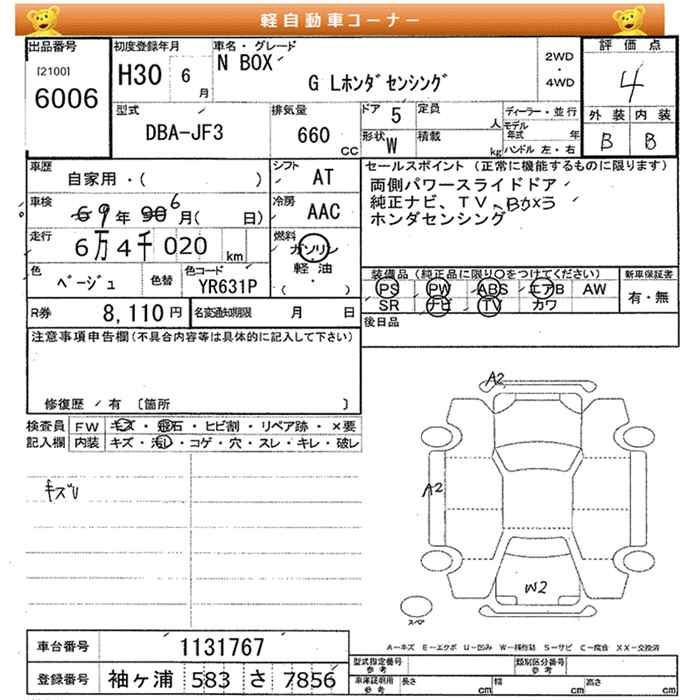 軽自動車コーナー
出品番号
[2100]
6006
初度登録年月
H30 6 月
車名・グレード
N BOX
G Lホンダセンシング
2WD
・
4WD
評価点
4
外装 内装
B B
型式
DBA-JF3
排気量
660 CC
ドア 5
形状 W
定員 人
積載 kg
ディーラー・並行
モデル年式 年
ハンドル 左・右
車歴
自家用・( )
シフト AT
車検
6 9年 30 6月( 日)
冷房 AAC
走行
6万4千020 km
燃料
ガソリン
軽油
( ・ )
色
ベージュ
色替
色コード
YR631P
R券 8,110円
名変通知期限 月 日
セールスポイント(正常に機能するものに限ります)
両側パワースライドドア
純正ナビ、TV、Bカメラ
ホンダセンシング
装備品(純正品に限り○をつけてください)
PS PW ABS エアB AW
SR ナビ TV カワ
新車保証書
有・無
後日品
注意事項申告欄(不具合内容等は具体的に記入して下さい)
修復歴/有 〔箇所 〕
検査員記入欄
FW キズ・飛石・ヒビ割・リペア跡・×要
内装 キズ・汚れ・コゲ・穴・スレ・キレ・破レ
キズU
A2
A2
W2
スペア
A-キズ E-エクボ U-凹み W-補修跡 S-サビ C-腐食 XX-交換済
車台番号 1131767
登録番号 袖ヶ浦 583 さ 7856
型式指定番号 参考
類別区分番号 参考
車庫証明用 参考
長さ cm 幅 cm 高さ cm